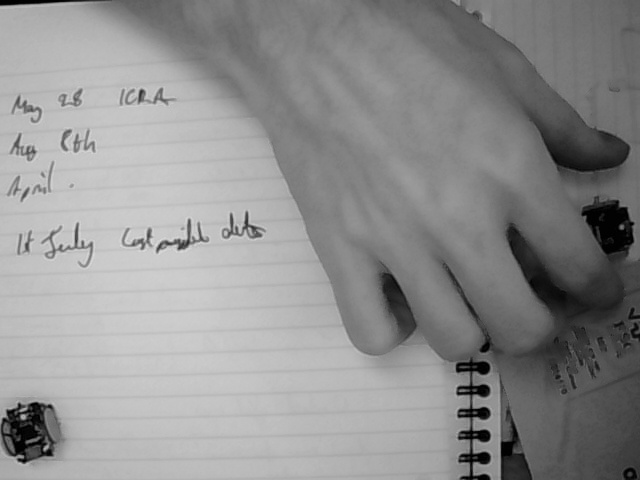 May 28 ICRA
Aug 8th
April.
1st July last possible date